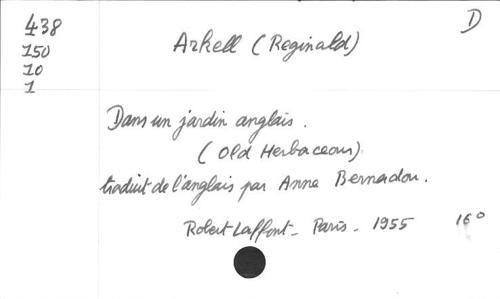 D
438
150
10
1
Arkell (Reginald)
Dans un jardin anglais.
(Old Herbaceous)
traduit de l'anglais par Anne Bernadou.
Robert Laffont - Paris - 1955 16°